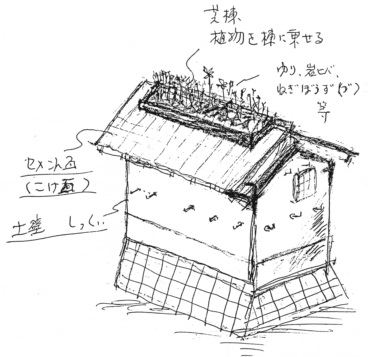 芝棟
植物を棟に乗せる
ゆり、岩ヒバ、
ねぎぼうず(ゞ)
等
セメント瓦
(こけ瓦)
土壁 しっくい